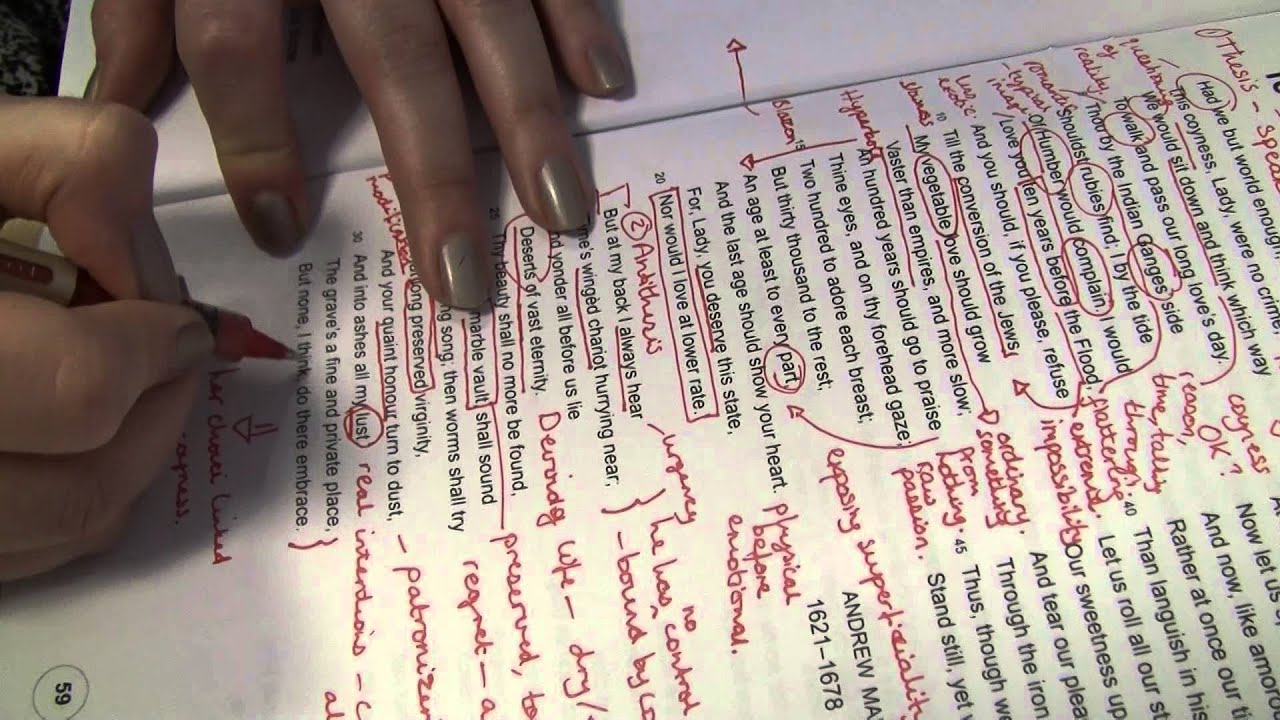 ① Thesis - speak
Had we but world enough,
This coyness, Lady, were no crime,
coyness
OK?
questioning
of
reality
We would sit down and think which way
To walk and pass our long love's day.
reason,
time, totally
through.
Thou by the Indian Ganges' side
Shouldst rubies find; I by the tide
Of Humber would complain. I would
Love you ten years before the Flood,
extreme.
impossibility
And you should, if you please, refuse
10 Till the conversion of the Jews.
exotic
My vegetable love should grow
Vaster than empires, and more slow;
ordinary.
something
from
nothing.
raw
passion.
Hyperbole
An hundred years should go to praise
Thine eyes, and on thy forehead gaze;
Blazon
15 Two hundred to adore each breast;
But thirty thousand to the rest;
An age at least to every part,
And the last age should show your heart.
exposing superficiality
physical
before
emotional.
For, Lady, you deserve this state,
20 Nor would I love at lower rate.
② Antithesis
But at my back I always hear
winged chariot hurrying near;
- urgency
he has no control
- bound by
yonder all before us lie
Deserts of vast eternity.
life - dry/
25 Thy beauty shall no more be found,
marble vault, shall sound
song; then worms shall try
long preserved virginity,
preserved, to
regret - a
And your quaint honour turn to dust,
- patronizen
30 And into ashes all my lust
real intentions - c
The grave's a fine and private place,
But none, I think do there embrace.
al
her linked
ANDREW MA
1621–1678
Now let us
And now, like amoro
Rather at once our ti
40 Than languish in his
Let us roll all our st
Our sweetness up
And tear our plea
Through the iron
45 Thus, though we
Stand still, yet
59